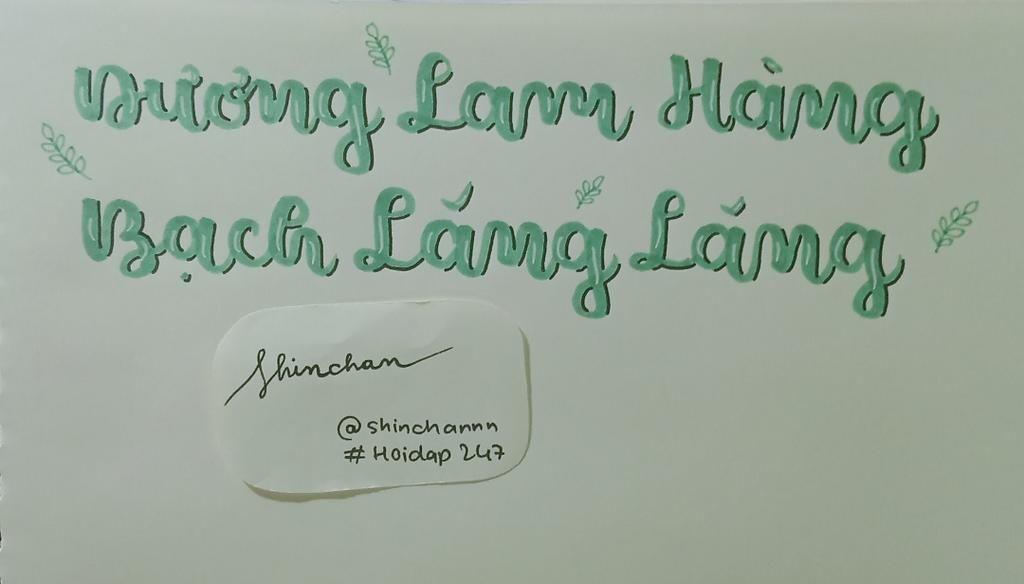 Dương Lam Hàng
Bạch Lắng Lắng
Shinchan
@shinchannn
#Hoidap 247